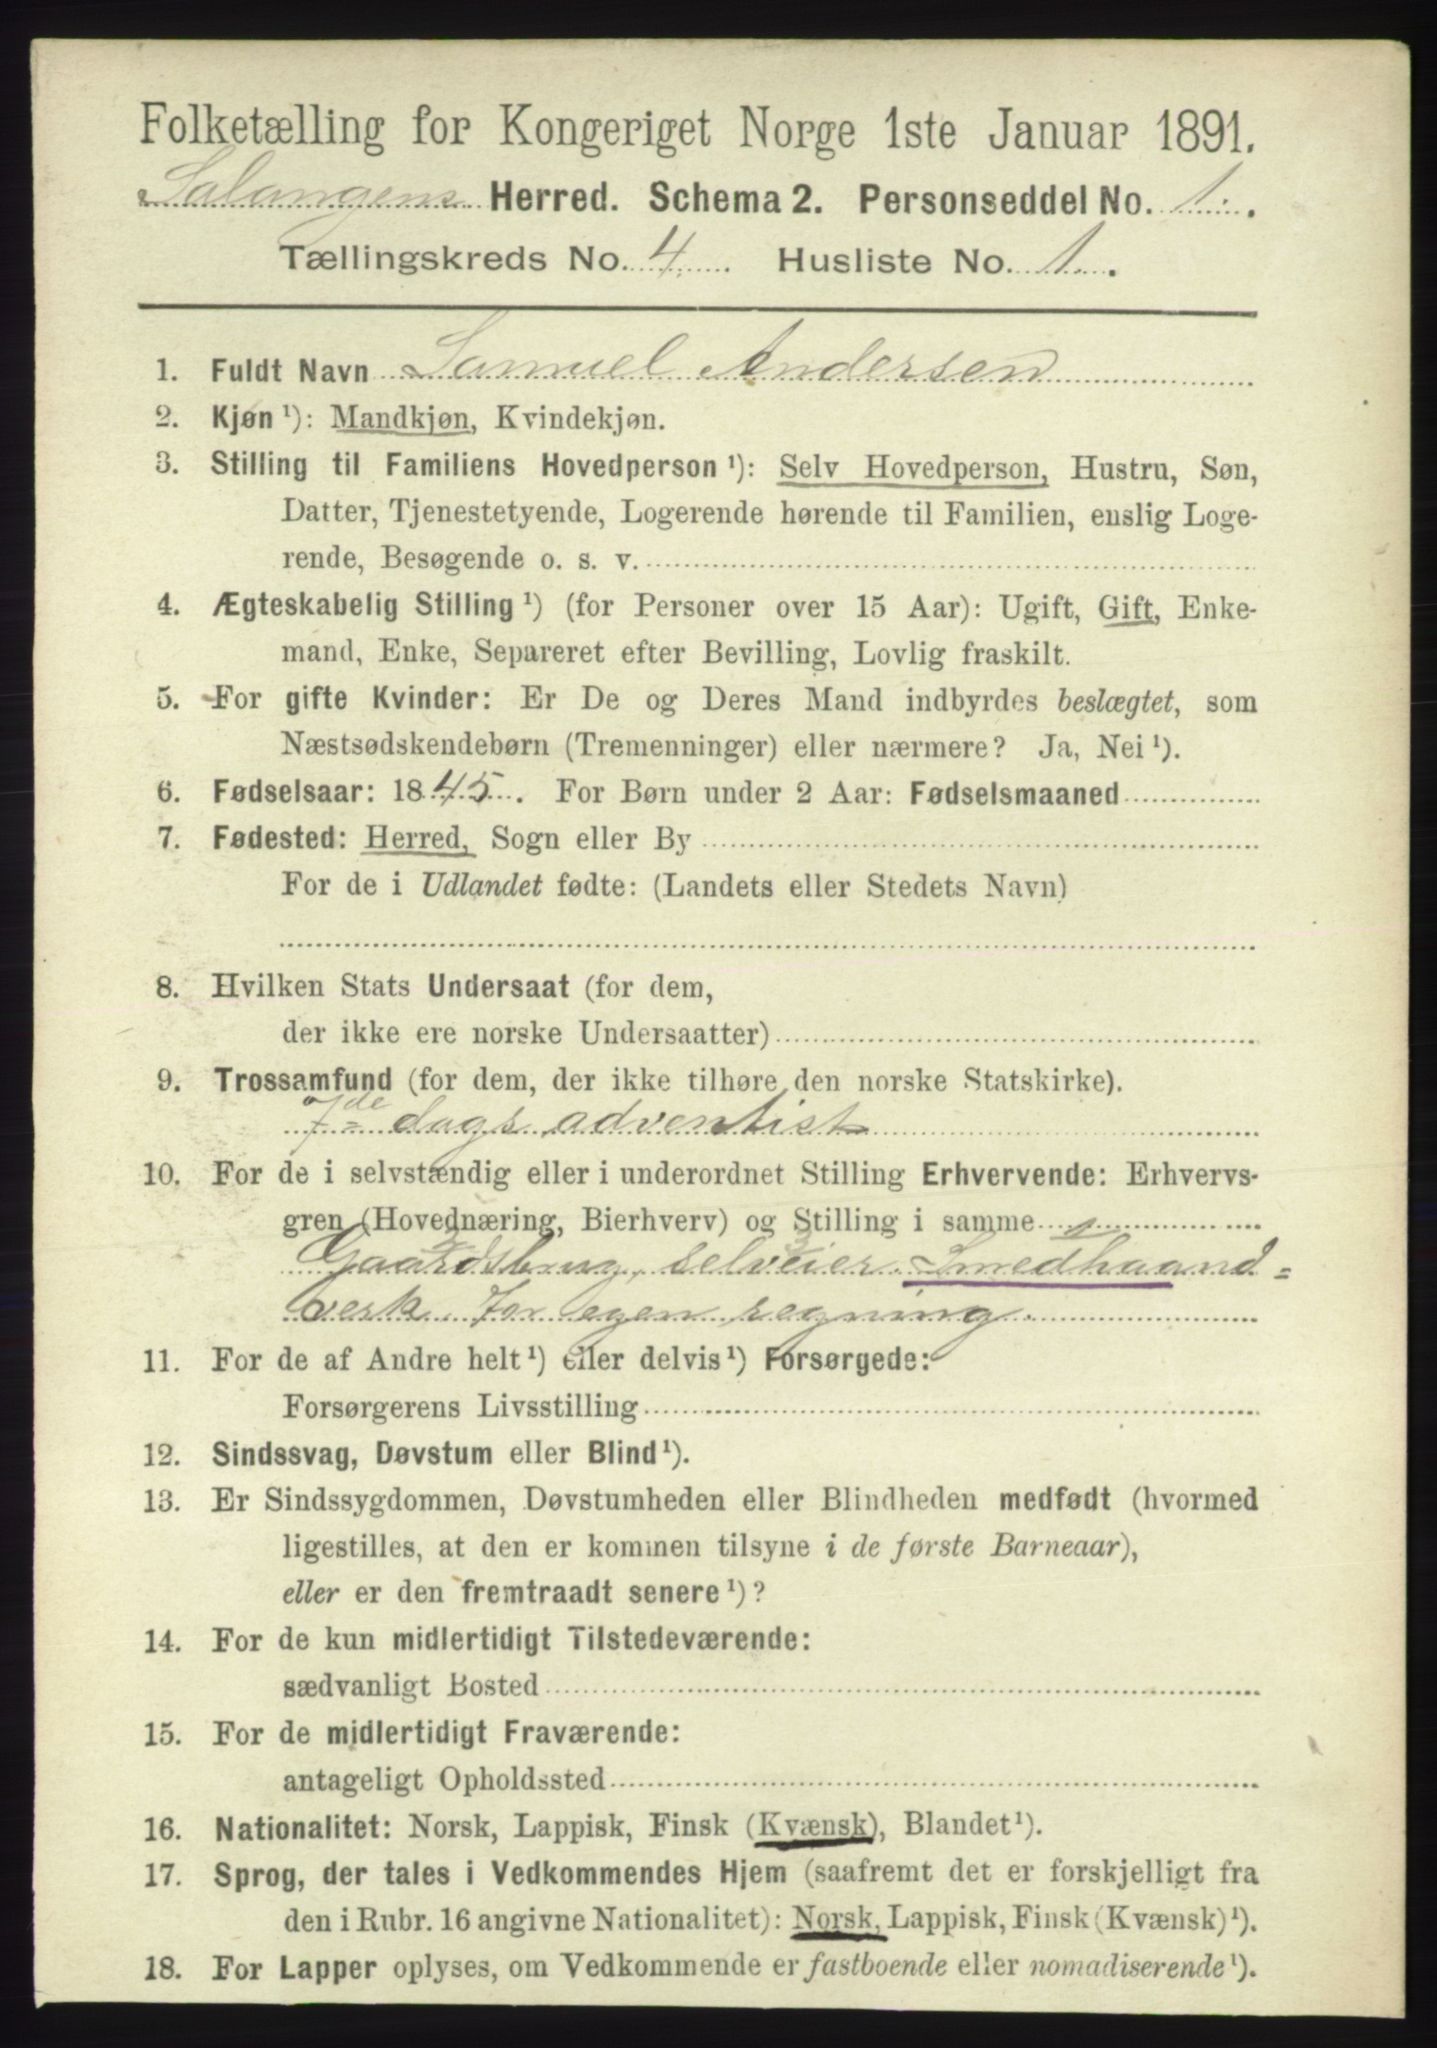 Folketælling for Kongeriget Norge 1ste Januar 1891.
Salangens Herred. Schema 2. Personseddel No. 1.
Tællingskreds No. 4. Husliste No. 1.
1. Fuldt Navn Samuel Andersen
2. Kjøn ¹): Mandkjøn, Kvindekjøn.
3. Stilling til Familiens Hovedperson ¹): Selv Hovedperson, Hustru, Søn,
Datter, Tjenestetyende, Logerende hørende til Familien, enslig Loge-
rende, Besøgende o. s. v.
4. Ægteskabelig Stilling ¹) (for Personer over 15 Aar): Ugift, Gift, Enke-
mand, Enke, Separeret efter Bevilling, Lovlig fraskilt.
5. For gifte Kvinder: Er De og Deres Mand indbyrdes beslægtet, som
Næstsødskendebørn (Tremenninger) eller nærmere? Ja, Nei ¹).
6. Fødselsaar: 1845. For Børn under 2 Aar: Fødselsmaaned
7. Fødested: Herred, Sogn eller By
For de i Udlandet fødte: (Landets eller Stedets Navn)
8. Hvilken Stats Undersaat (for dem,
der ikke ere norske Undersaatter)
9. Trossamfund (for dem, der ikke tilhøre den norske Statskirke).
7de dags adventist
10. For de i selvstændig eller i underordnet Stilling Erhvervende: Erhvervs-
gren (Hovednæring, Bierhverv) og Stilling i samme
Gaardsbrug, selveier. Smedhaand=
verk for egen regning.
11. For de af Andre helt ¹) eller delvis ¹) Forsørgede:
Forsørgerens Livsstilling
12. Sindssvag, Døvstum eller Blind ¹).
13. Er Sindssygdommen, Døvstumheden eller Blindheden medfødt (hvormed
ligestilles, at den er kommen tilsyne i de første Barneaar),
eller er den fremtraadt senere ¹)?
14. For de kun midlertidigt Tilstedeværende:
sædvanligt Bosted
15. For de midlertidigt Fraværende:
antageligt Opholdssted
16. Nationalitet: Norsk, Lappisk, Finsk (Kvænsk), Blandet ¹).
17. Sprog, der tales i Vedkommendes Hjem (saafremt det er forskjelligt fra
den i Rubr. 16 angivne Nationalitet): Norsk, Lappisk, Finsk (Kvænsk) ¹).
18. For Lapper oplyses, om Vedkommende er fastboende eller nomadiserende ¹).